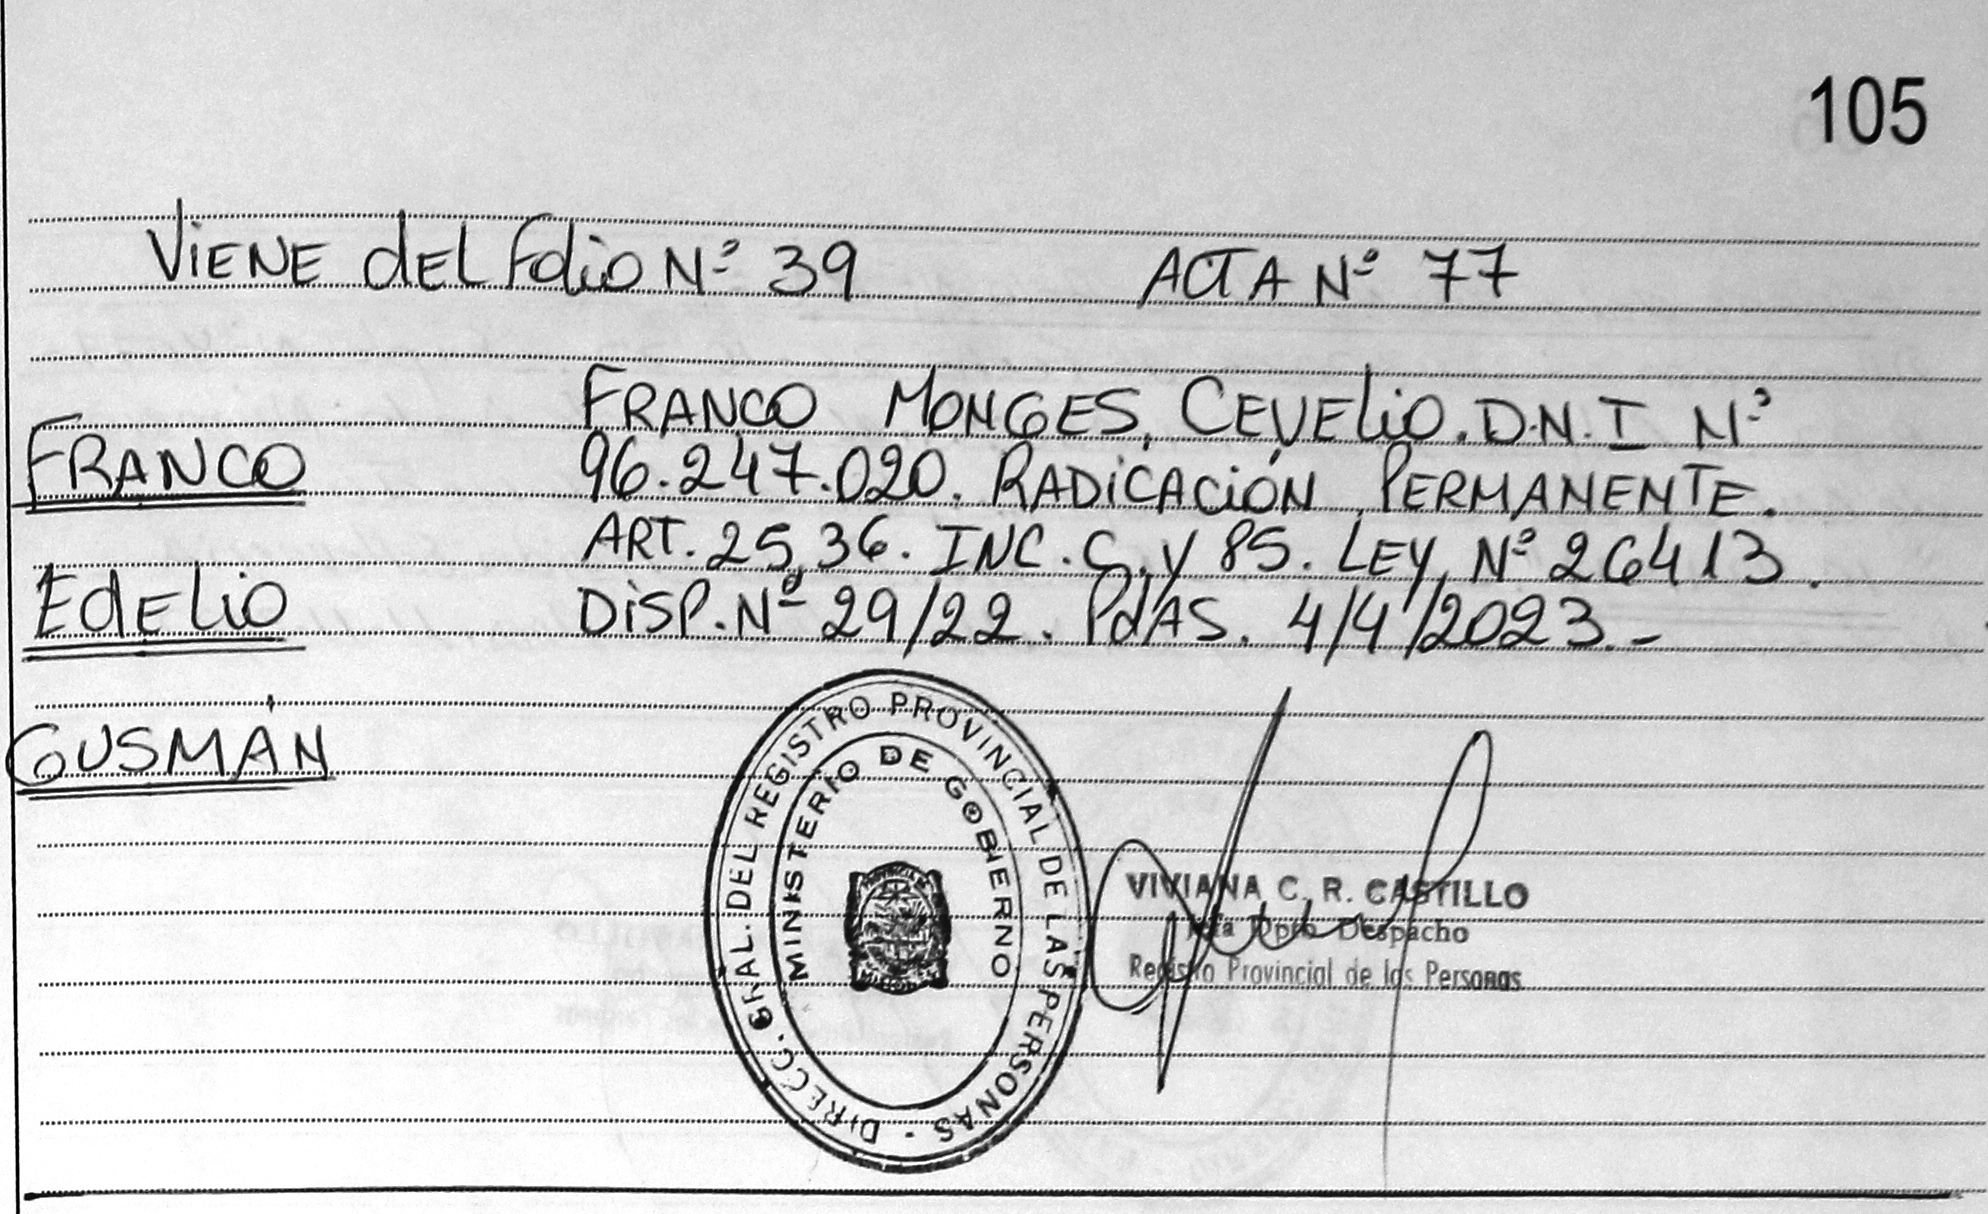 105
VIENE dEL Folio Nº 39 ACTA Nº 77
FRANCO MONGES, CEVELiO. D.N.I Nº
FRANCO
96.247.020. RADICACIÓN PERMANENTE.
ART. 25, 36. INC. C. y 85. LEY Nº 26413.
EdELiO
DISP. Nº 29/22. PdAS. 4/4/2023.-
GUSMÁN
DIRECC. GRAL. DEL REGISTRO PROVINCIAL DE LAS PERSONAS -
MINISTERIO DE GOBIERNO
VIVIANA C. R. CASTILLO
Jefa Dpto Despacho
Registro Provincial de las Personas